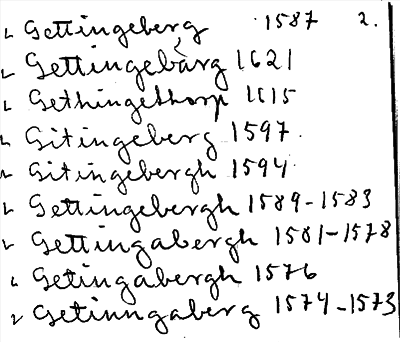 Gettingeberg 1587 2.
Gettingebärg 1621
Gethingethorp 1615
Gitingeberg 1597.
Gitingebergh 1594.
Gettingebergh 1589-1583
Gettingabergh 1581-1578
Getingabergh 1576
Getinngaberg 1574-1573